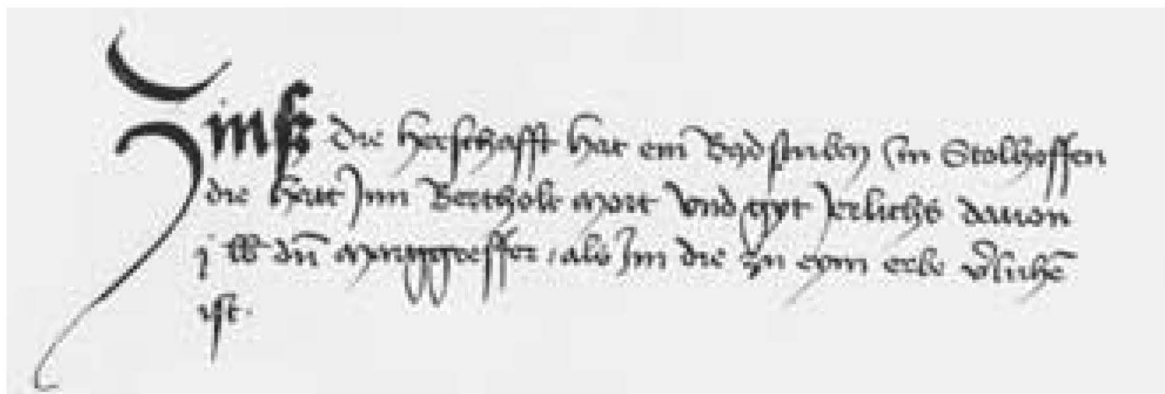 Zinsz die herschafft hat ein Badstuben Inn Stolhoffen
die hett Inn Bertholt Mort vnd gyt Jerlichs dauon
j lb dn̄ Marggreffer, als Im die zu eym erbe v̾luhē
ist.